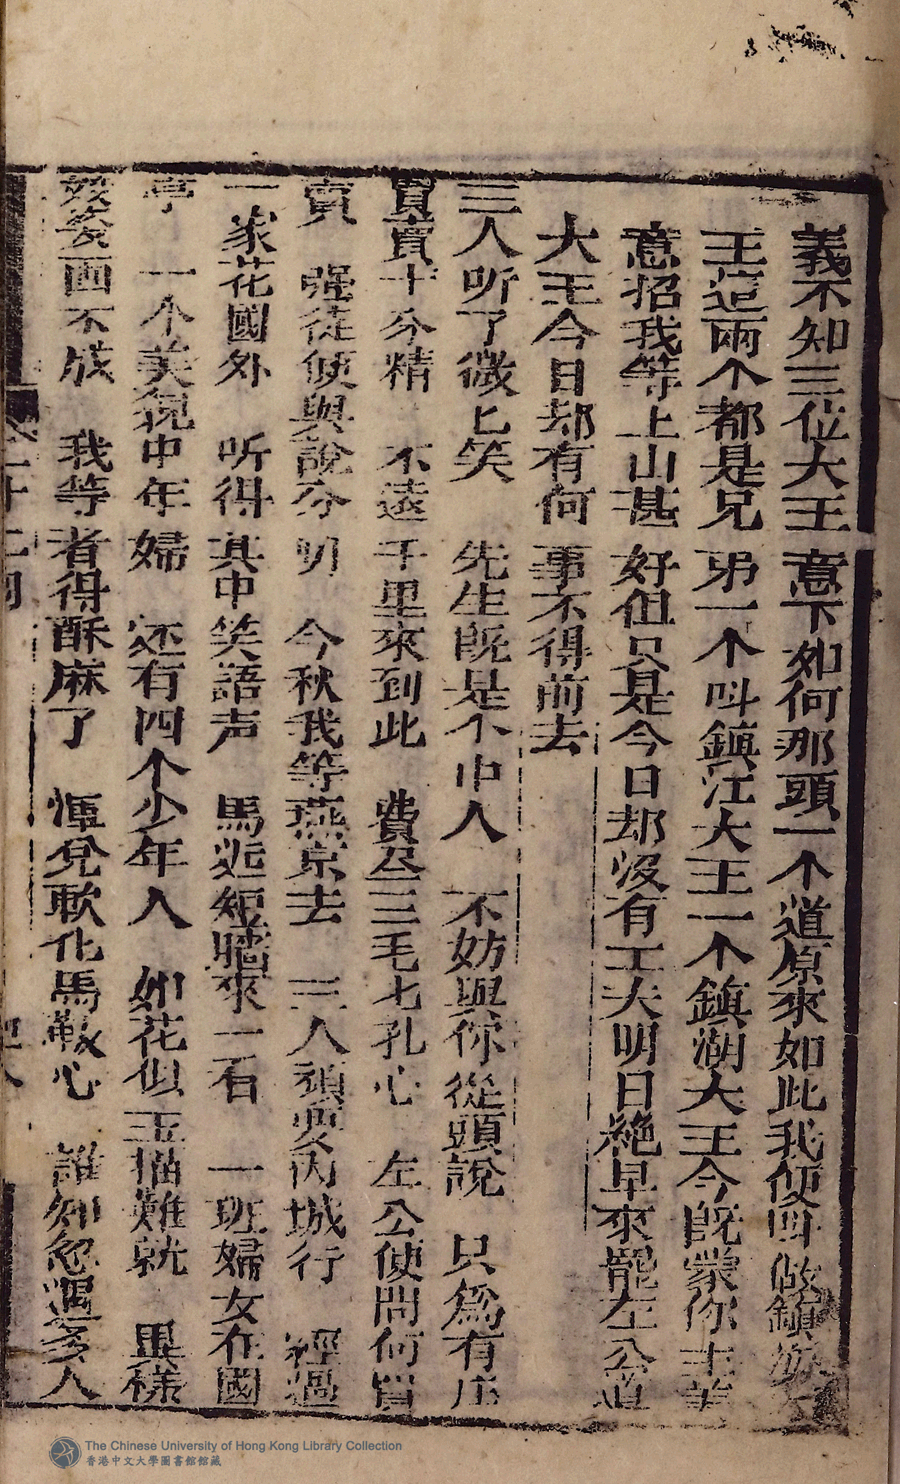 義不知三位大王意下如何那頭一个道原來如此我便呌做鎮
王這兩个都是兄弟一个呌鎮江大王一个鎮湖大王今既蒙你
意招我等上山甚好但只是今日却沒有工夫明日絶早來罷左公道
大王今日却有何事不得前去
三人听了微匕笑 先生既是个中人 不妨與你從頭說 只為有庄
買賣十分精 不遠千里來到此 費尽三毛七孔心 左公便問何買
賣 强徒便與說分明 今秋我等燕京去 三人須要内城行 經過
一家花國外 听得其中笑語声 馬近短墻來一看 一班婦女在國
亭 一个美貌中年婦 还有四个少年人 如花似玉描難就 異樣
画不成 我等看得酥麻了 化馬 心 誰知忽遇多人
The Chinese University of Hong Kong Library Collection
香港中文大學圖書館館藏